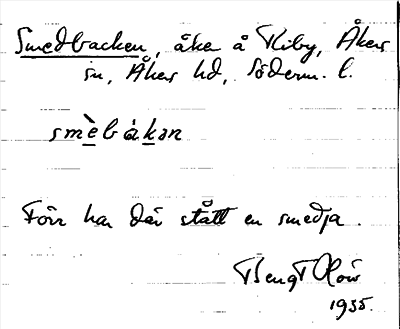 Smedbacken, åke å Kiby, Åkers
sn, Åkers hd, Söderm. l.
smèbákan
Förr har där stått en smedja.
Bengt Olów
1935.